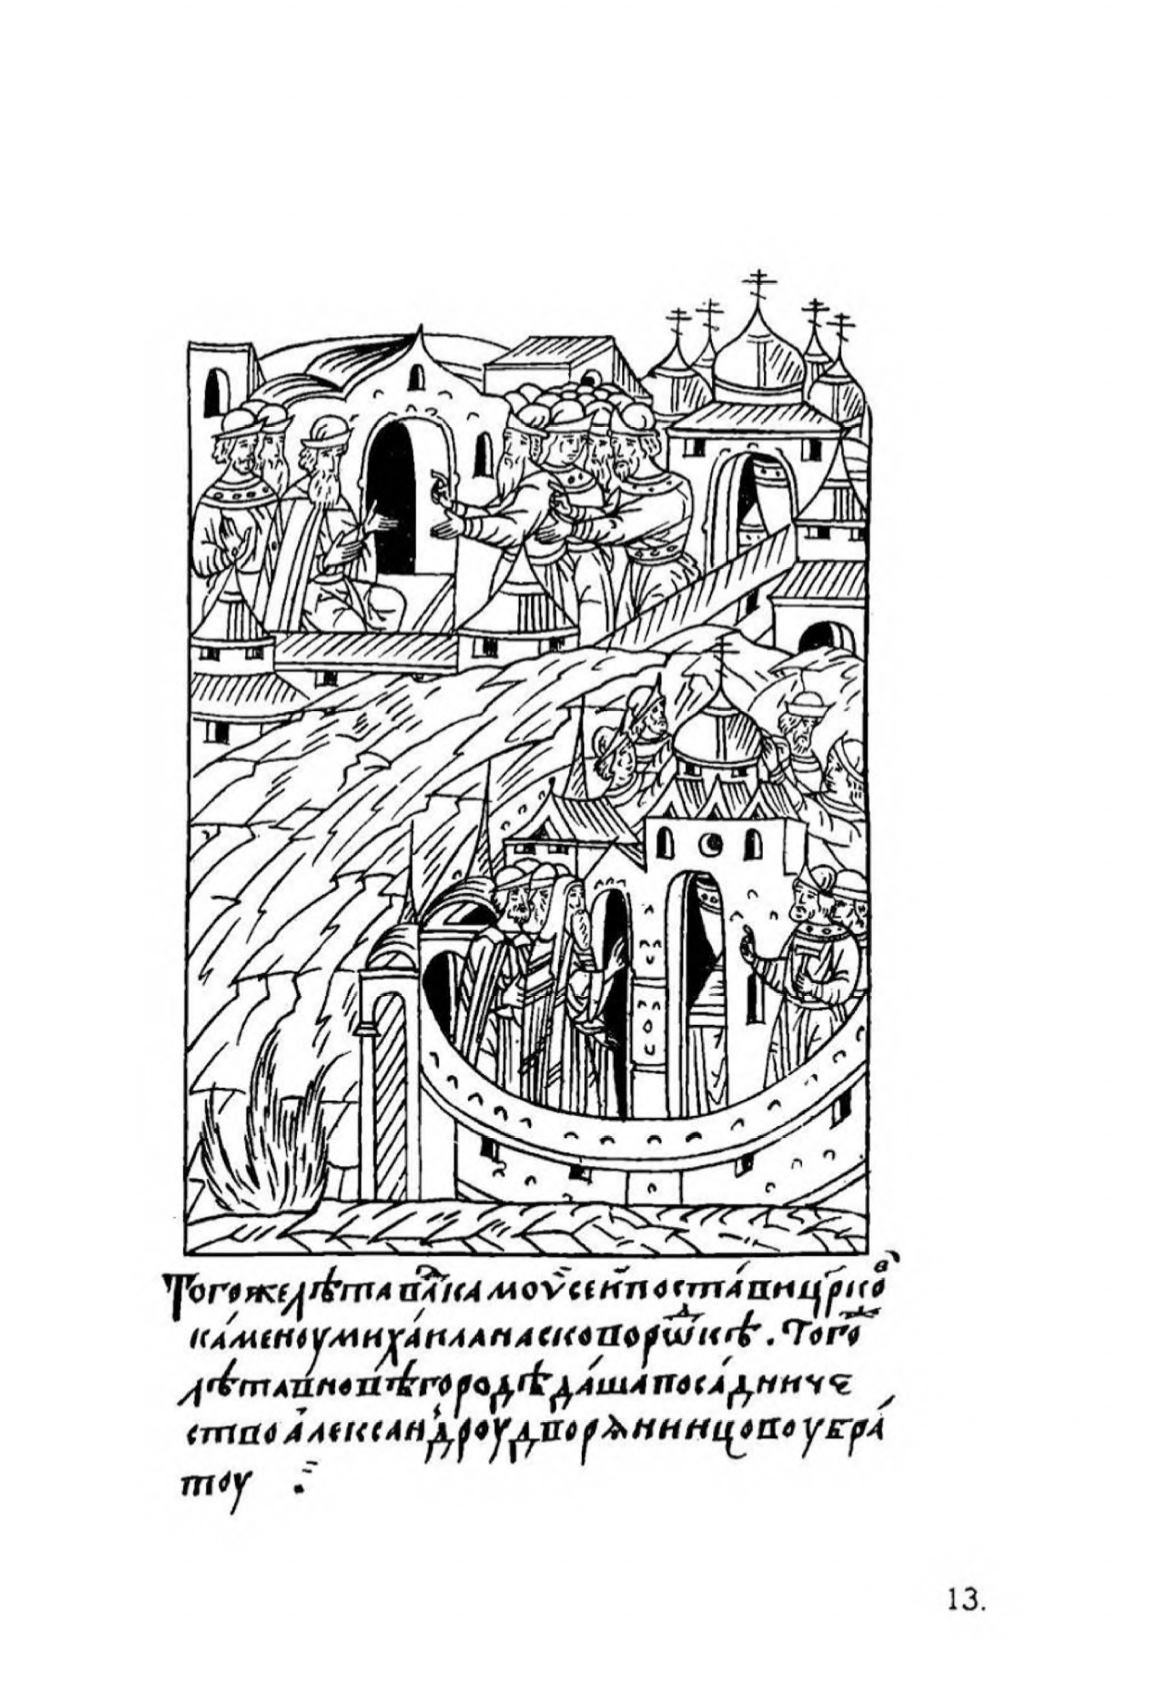 Тогоже лѣта влⷣка моѵсеи постави цр҃ко́ⷡ
ка́меноу миха́ила на сковоро́ⷣкѣ . Тогоⷤ
лѣта в новѣгородѣ да́ша поса́дниче
ство а́лександроу дворѧнинцовоу бра́
тоу
13.